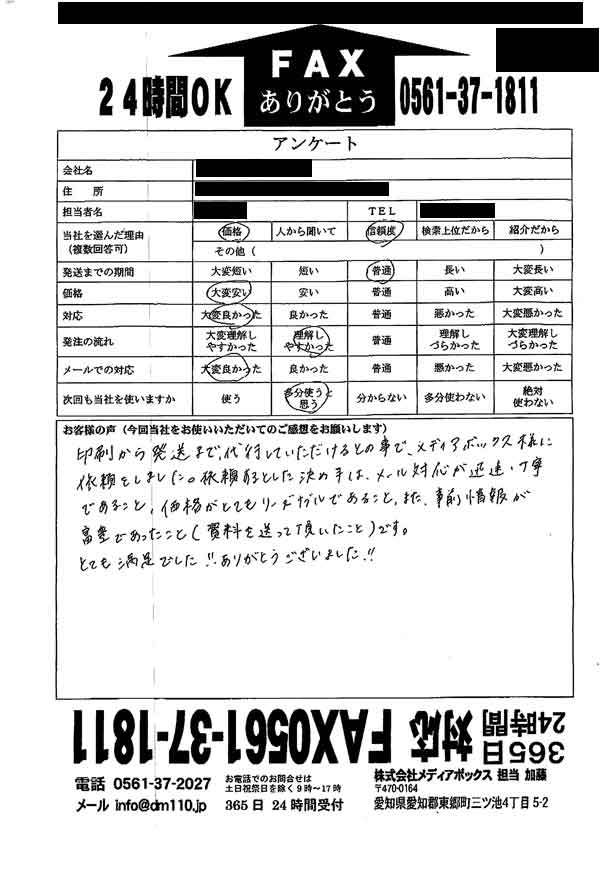 FAX
ありがとう
24時間OK
0561-37-1811
アンケート
会社名
住 所
担当者名 TEL
当社を選んだ理由 (複数回答可) 価格 人から聞いて 信頼度 検索上位だから 紹介だから
その他 ( )
発送までの期間 大変短い 短い 普通 長い 大変長い
価格 大変安い 安い 普通 高い 大変高い
対応 大変良かった 良かった 普通 悪かった 大変悪かった
発注の流れ 大変理解しやすかった 理解しやすかった 普通 理解しづらかった 大変理解しづらかった
メールでの対応 大変良かった 良かった 普通 悪かった 大変悪かった
次回も当社を使いますか 使う 多分使うと思う 分からない 多分使わない 絶対使わない
お客様の声(今回当社をお使いいただいてのご感想をお願いします)
印刷から発送まで、代行していただけるとの事で、メディアボックス様に
依頼をしました。依頼するとした決め手は、メール対応が迅速・丁寧
であること、価格がとてもリーズナブルであること、また、事前情報が
豊富であったこと(資料を送って頂いたこと)です。
とても満足でした!!ありがとうございました!!
365日 24時間 対応 FAX0561-37-1811
電話 0561-37-2027
メール info@dm110.jp
お電話でのお問合せは
土日祝祭日を除く9時~17時
365日 24時間受付
株式会社メディアボックス 担当 加藤
〒470-0164
愛知県愛知郡東郷町三ツ池4丁目5-2